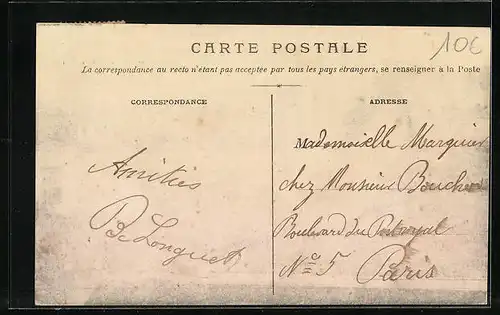 10€
CARTE POSTALE
La correspondance au recto n'étant pas acceptée par tous les pays étrangers, se renseigner à la Poste
CORRESPONDANCE
ADRESSE
Amitiés
Longuet
Mademoiselle Marquier
chez Monsieur Boucher
Boulevard du Port royal
No 5 Paris